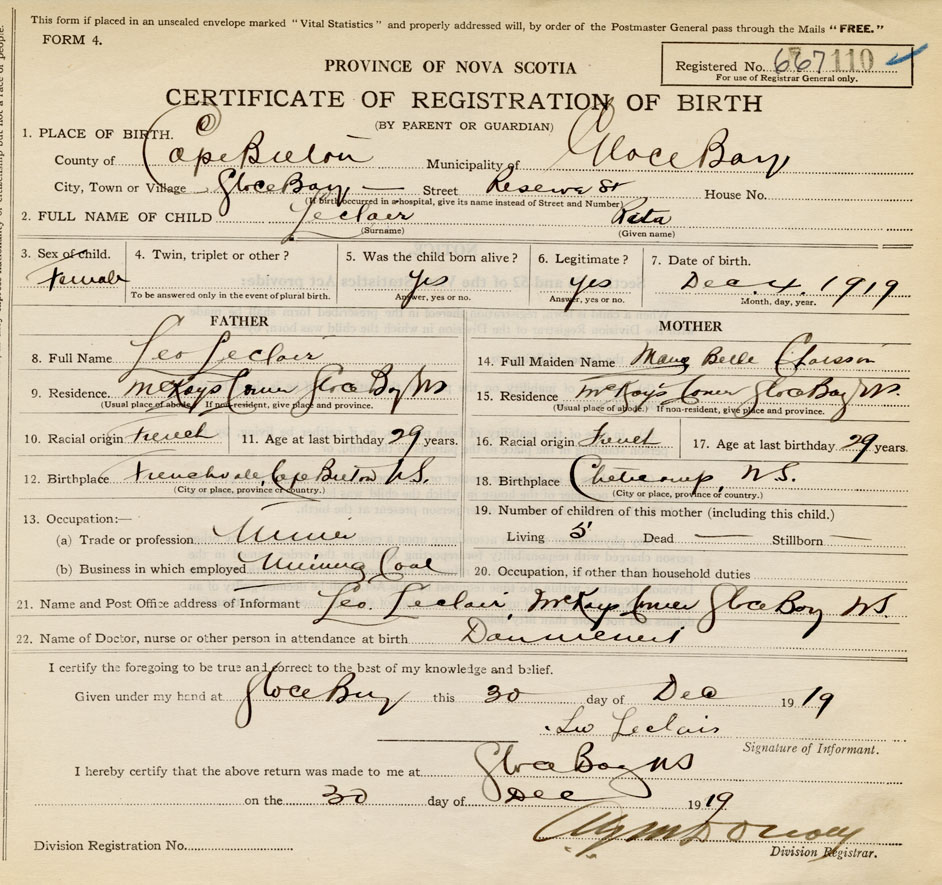 This form if placed in an unsealed envelope marked "Vital Statistics" and properly addressed will, by order of the Postmaster General pass through the Mails "FREE."
FORM 4.
Registered No. 667110
For use of Registrar General only.
PROVINCE OF NOVA SCOTIA
CERTIFICATE OF REGISTRATION OF BIRTH
(BY PARENT OR GUARDIAN)
1. PLACE OF BIRTH.
County of Cape Breton Municipality of Glace Bay
City, Town or Village Glace Bay — Street Reserve St House No.
(If birth occurred in a hospital, give its name instead of Street and Number)
2. FULL NAME OF CHILD Leclair Rita
(Surname) (Given name)
3. Sex of child. 4. Twin, triplet or other? 5. Was the child born alive? 6. Legitimate? 7. Date of birth.
Female Yes yes Dec. 4. 1919
To be answered only in the event of plural birth. Answer, yes or no. Answer, yes or no. Month, day, year.
FATHER
8. Full Name Leo Leclair
9. Residence. McKays Corner Glace Bay NS
(Usual place of abode. If non-resident, give place and province.
10. Racial origin French 11. Age at last birthday 29 years.
12. Birthplace Frenchvale, Cape Breton N.S.
(City or place, province or country.)
13. Occupation:—
(a) Trade or profession Miner
(b) Business in which employed Mining Coal
MOTHER
14. Full Maiden Name Mary Belle Chaisson
15. Residence McKay's Corner Glace Bay N.S.
(Usual place of abode.) If non-resident, give place and province.
16. Racial origin French 17. Age at last birthday 29 years.
18. Birthplace Cheticamp, N.S.
(City or place, province or country.)
19. Number of children of this mother (including this child.)
Living 5 Dead — Stillborn —
20. Occupation, if other than household duties
21. Name and Post Office address of Informant Leo. Leclair McKays Corner Glace Bay N.S.
22. Name of Doctor, nurse or other person in attendance at birth
I certify the foregoing to be true and correct to the best of my knowledge and belief.
Given under my hand at Glace Bay this 30 day of Dec 1919
Leo Leclair
Signature of Informant.
I hereby certify that the above return was made to me at Glace Bay NS
on the 30 day of Dec 1919
Division Registration No.
Division Registrar.